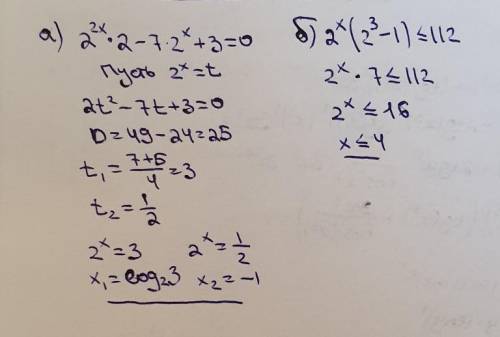 а) 2^{2x}·2-7·2^x+3=0
Пусть 2^x=t
2t²-7t+3=0
D=49-24=25
t₁=\frac{7+5}{4}=3
t₂=\frac{1}{2}
2^x=3 2^x=\frac{1}{2}
x₁=log₂3 x₂=-1
б) 2^x(2³-1)≤112
2^x·7≤112
2^x≤16
x≤4